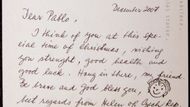 December 2007
Dear Pablo,
I think of you at this spe-
cial time of Christmas, wishing
you strenght, good health and
good luck. Hang in there, my friend
Be brave and God bless you,
best regards from Helen of